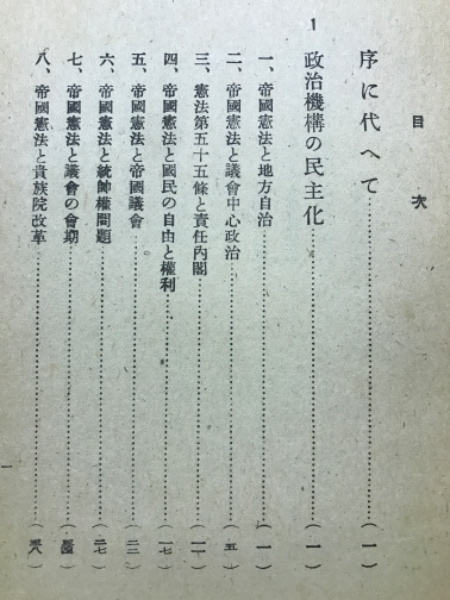 目次
序に代へて……(一)
1 政治機構の民主化……(一)
一、帝國憲法と地方自治……(一)
二、帝國憲法と議會中心政治……(五)
三、憲法第五十五條と責任內閣……(一一)
四、帝國憲法と國民の自由と權利……(一七)
五、帝國憲法と帝國議會……(二二)
六、帝國憲法と統帥權問題……(二七)
七、帝國憲法と議會の會期
八、帝國憲法と貴族院改革
一